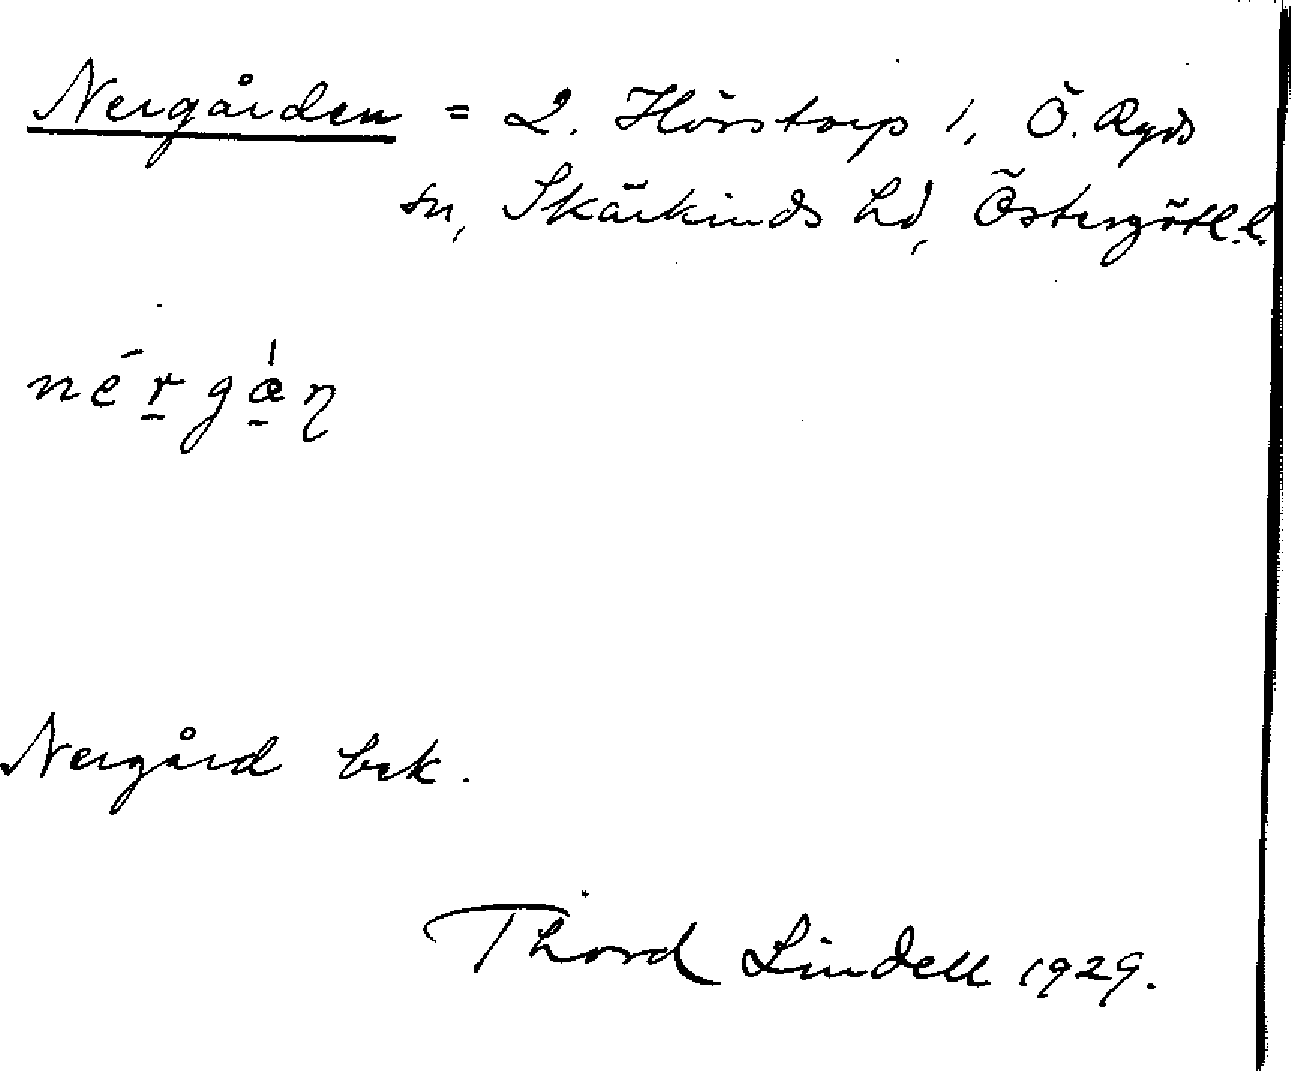 Nergården = L. Hörstorp 1, Ö. Ryds
sn, Skärkinds hd, Östergötl. l.
nérgǻn
Nergård bek.
Thord Lindell 1929.